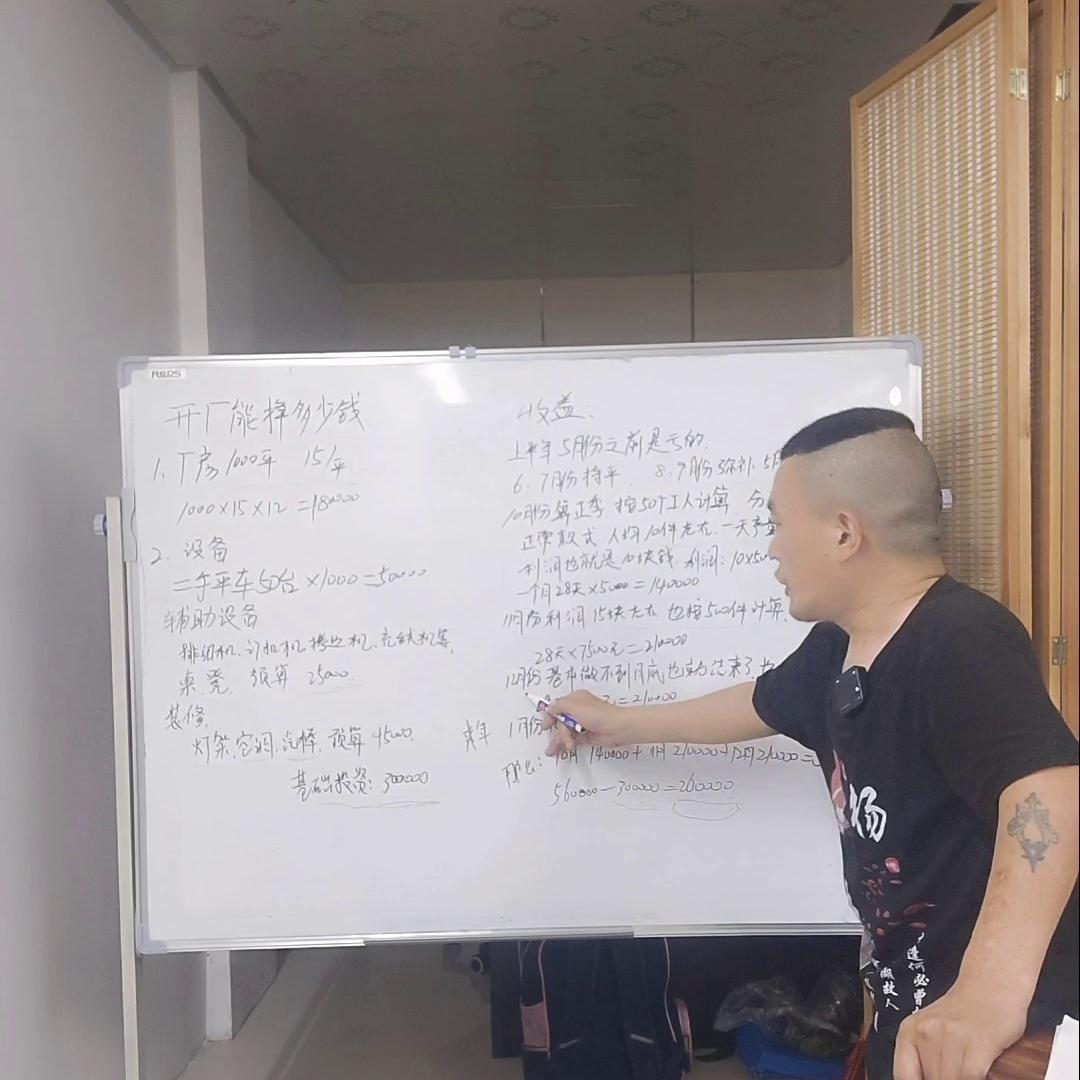 REDS
开厂能挣多少钱
1. 厂房 1000平 15/平
1000×15×12=180000
2. 设备
二手平车50台×1000=50000
辅助设备
桌、凳 预算 25000
装修
灯架、空调、汽棒、预算 45000
基础投资: 300000
收益:
上半年 5月份之前是亏的
6、7月份持平 8、9月份弥补、5月
10月份算正季 按50个工人计算 分
正常款式 人均10件左右、一天产量
利润也就是10块钱 利润: 10×500
一个月28天×5000=140000
11月份利润15块左右 也按500件计算
28天×7500元=210000
12月份基本做不到月底也就结束了
=210000
来年 1月份
10月 140000+11月 210000+12月210000=
560000-300000=260000
杨
故人